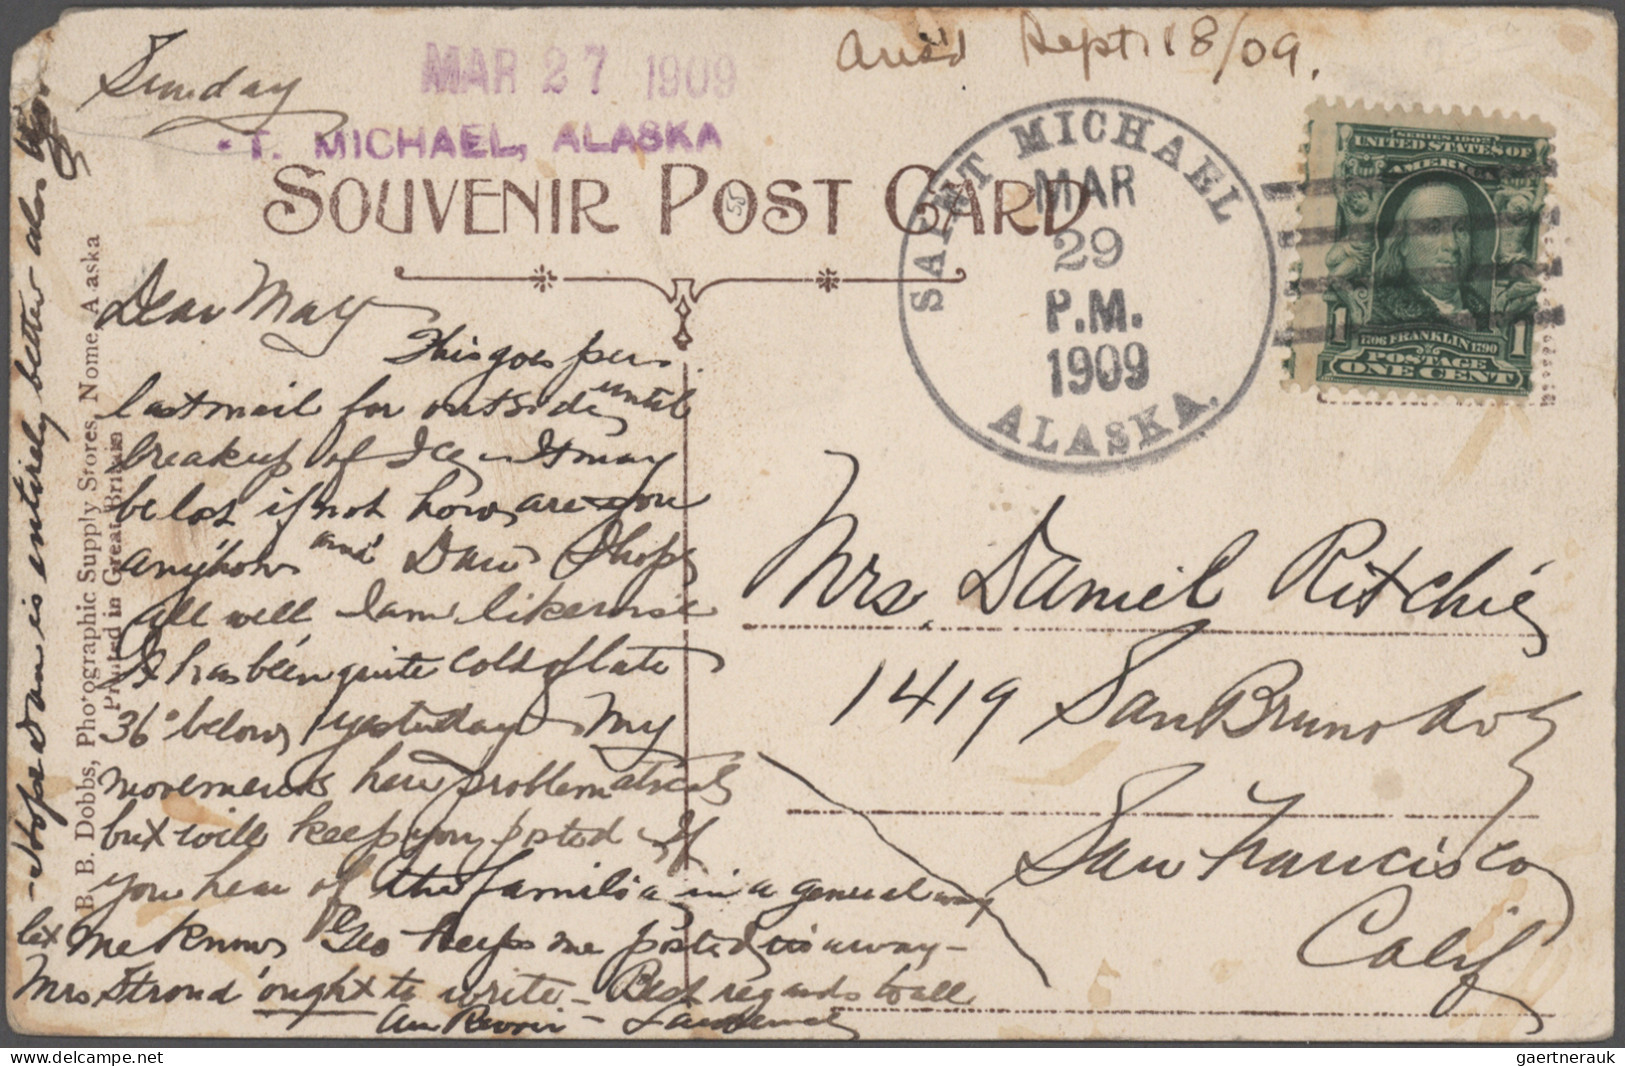 Sunday
MAR 27 1909
T. MICHAEL, ALASKA
Sept 18/09.
SOUVENIR POST CARD
SAINT MICHAEL
MAR
29
P.M.
1909
ALASKA.
SERIES 1902
UNITED STATES OF
AMERICA
1706 FRANKLIN 1790
1 1
POSTAGE
ONE CENT
Dear May
This goes per
last mail for outside until
breakup of Ice - It may
be lost if not how are you
anyhow and Dan I hope
all well I am likewise
It has been quite cold of late
36° below yesterday - My
movements here problematical
but will keep you posted - If
you hear of the familia in a general way
let me know Geo keeps me posted in a way -
Mrs Stroud ought to write - Best regards to all
Au Revoir -
- Hope Dan is entirely better also
B. B. Dobbs, Photographic Supply Stores, Nome, A aska
Printed in Great Britain
Mrs. Daniel Ritchie
1419 San Bruno Ave
San Francisco
Calif
gaertnerauk @